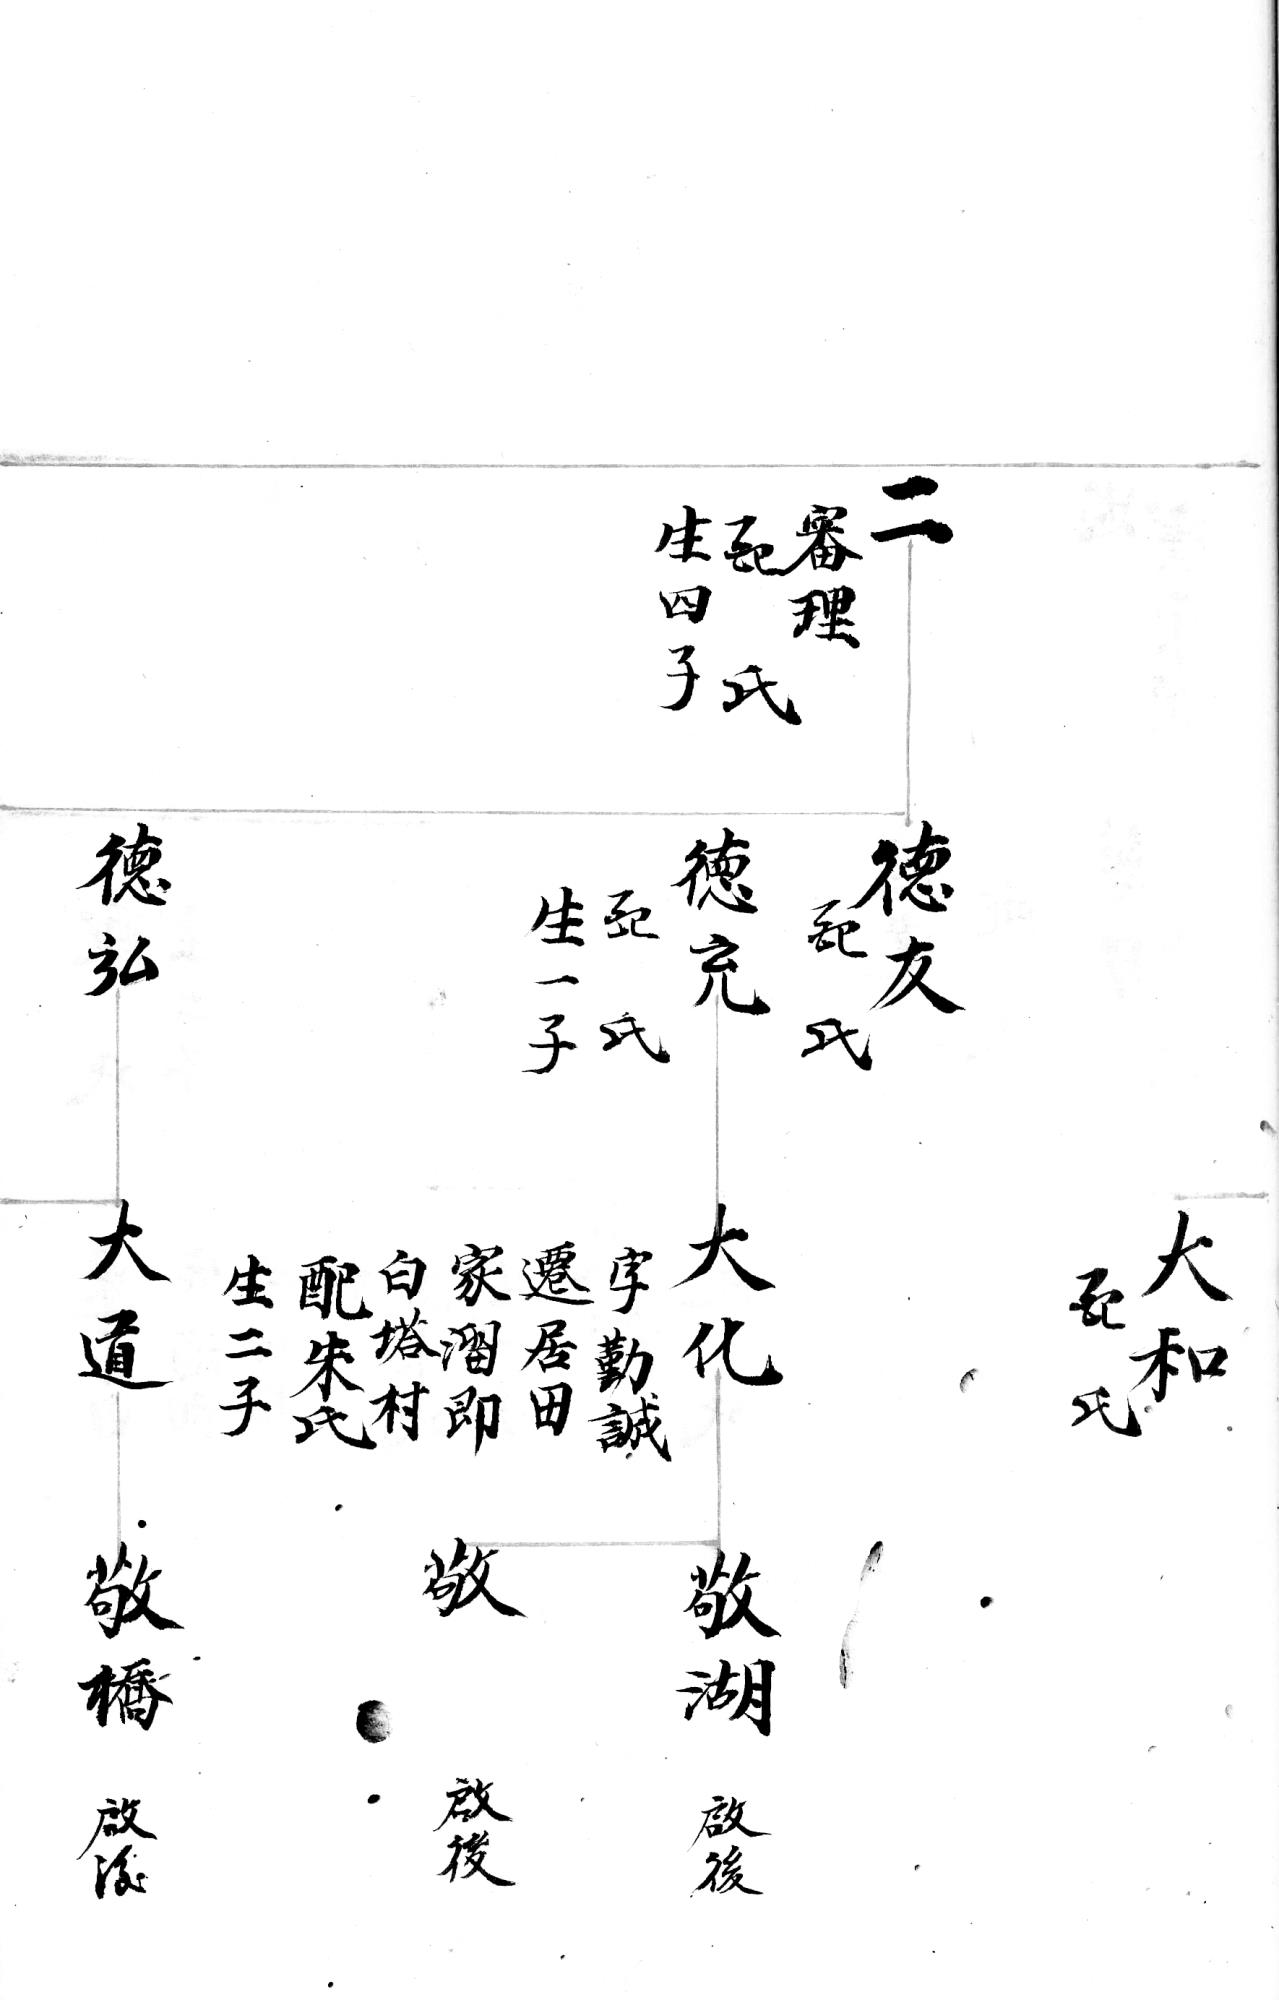 二
審理
配 氏
生四子
德友
配 氏
德充
配 氏
生一子
德弘
大和
配 氏
大化
字勤誠
遷居田
家溜即
白塔村
配朱氏
生二子
大道
敬湖
啟後
敬
啟後
敬橋
啟後